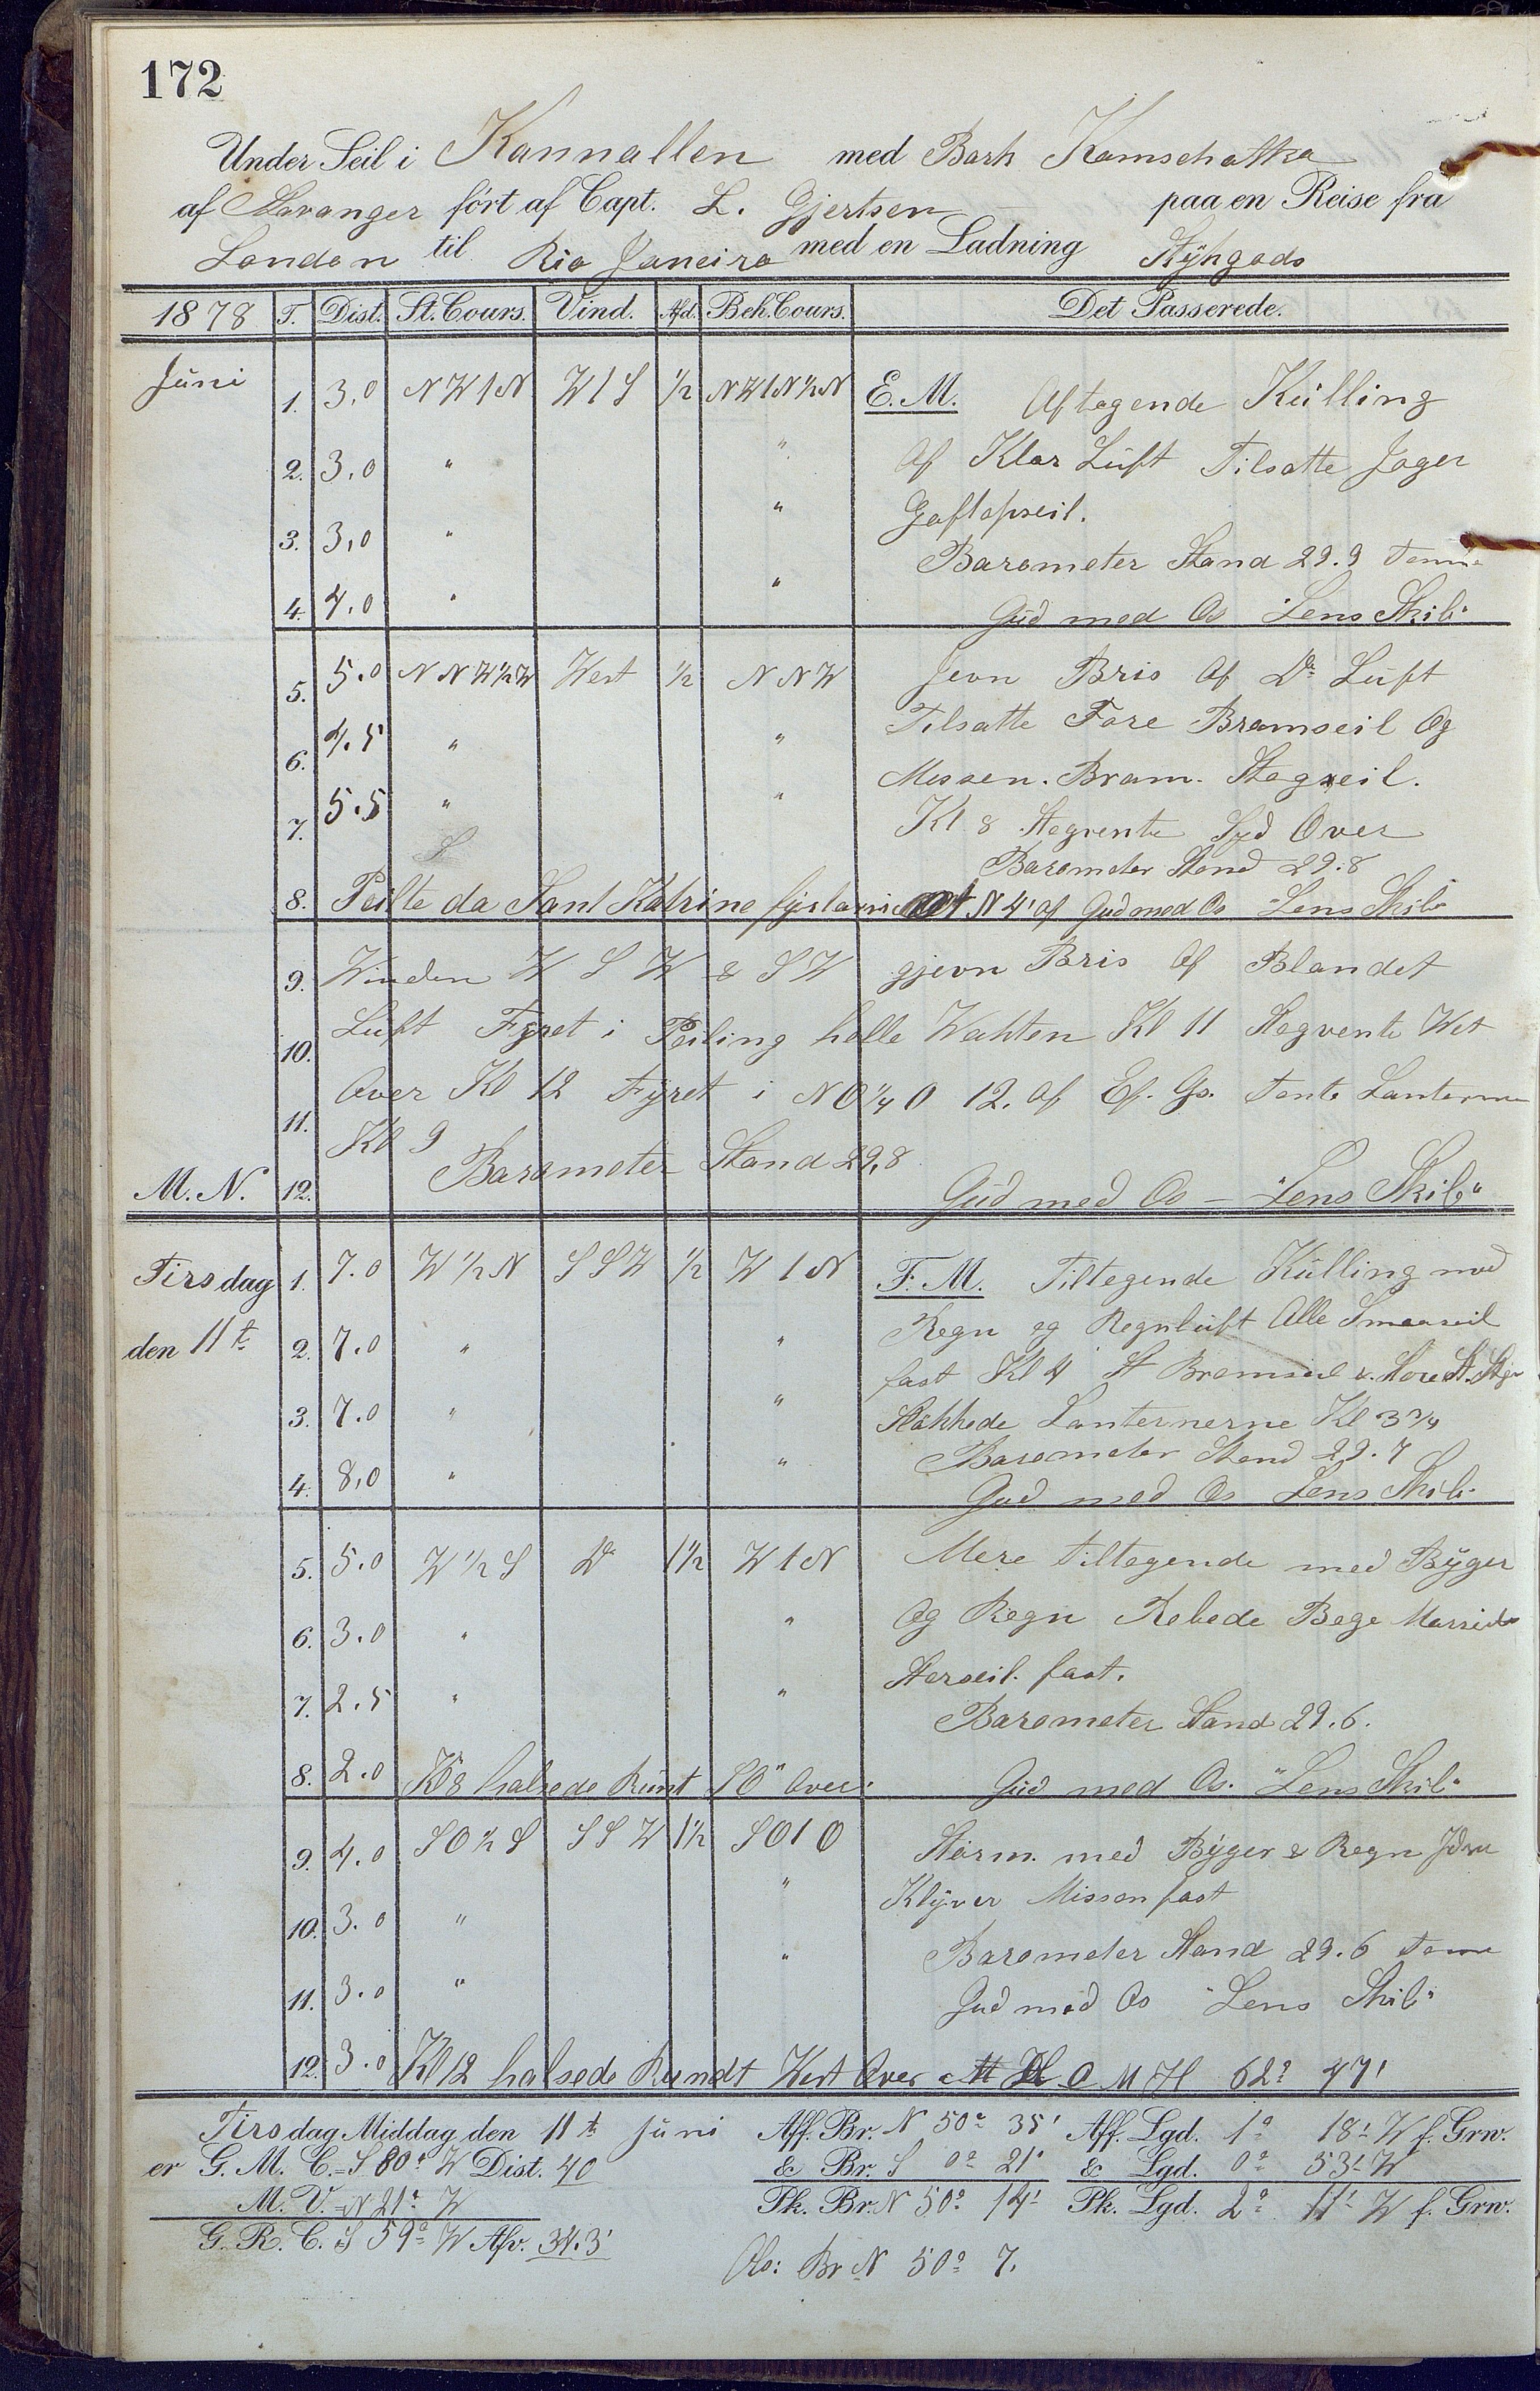 172
Under Seil i Kannallen med Bark Kamschatka
af Stavanger ført af Capt. L. Gjertsen paa en Reise fra
London til Rio Janeiro med en Ladning Stÿkgods
1878 T. Dist. St. Cours. Vind. Afd. Beh. Cours. Det Passerede.
Juni 1. 3,0 NW1N W1S ½ NW1N½N E. M. Aftagende Kulling
2. 3,0 " " Af Klar Luft Tilsatte Jager
3. 3,0 " " Gaftopseil.
Barometer Stand 29.9
4. 4.0 " " Gud med Os Lens Skib"
5. 5.0 NNW½W West ½ NNW Jevn Bris Af Do Luft
6. 4.5 " " Tilsatte Fore Bramseil Og
7. 5.5 " " Messen. Bram. Stagseil.
Kl 8 Stagvente Syd Over
Barometer Stand 29.8
8. Peilte da Sant Katrine N 4' af Gud med Os Lens Skib
9. Winden W S W & S W gjevn Bris Af Blandet
10. Luft Fyret i Peiling holle Wakten Kl 11 Stagvente Wst
11. Over Kl 12 Fÿret i NO¼O 12. Af Ef. Gs. Tente Lanterne
Kl 9
M. N. 12. Barometer Stand 29,8
Gud med Os — "Lens Skib"
Tirsdag 1. 7.0 W½N SSW ½ W1N F. M. Tiltagende Kulling med
den 11t 2. 7.0 " " Regn og Regnluft Alle Smaaseil
fast Kl 4 St Bramseil & Store St.
3. 7.0 " " Slökkede Lanternerne Kl 3¾
Barometer Stand 29.7
4. 8,0 " " Gud med Os Lens Skib
5. 5.0 W½S Do 1½ W1N Mere tiltagende med Bÿger
6. 3.0 " " Og Regn Rebede Bege
7. 2.5 " " Storseil. fast.
Barometer Stand 29.6.
8. 2.0 Kl 8 halsede Runt SO" Over. Gud med Os. "Lens Skib"
9. 4.0 SO½S SSW 1½ SO1O Storm. med Bÿger & Regn
10. 3.0 " " Klÿver Missen fast
Barometer Stand 29.6
11. 3.0 " " Gud med Os "Lens Skib"
12. 3.0 Kl 12 halsede Rundt West Over O M H 62° 47'
Tirsdag Middag den 11t Juni Aff. Br. N 50° 35' Aff. Lgd. 1° 18' W f. Grw.
er G. M. C. = S 80° W Dist. 40 & Br. S 0° 21' & Lgd. 0° 53' W
M. V. = N 21° W Pk. Br. N 50° 14' Pk. Lgd. 2° 11' W f. Grw.
G. R. C. S 59° W Afv. 34.3'
Obs: Br N 50° 7.